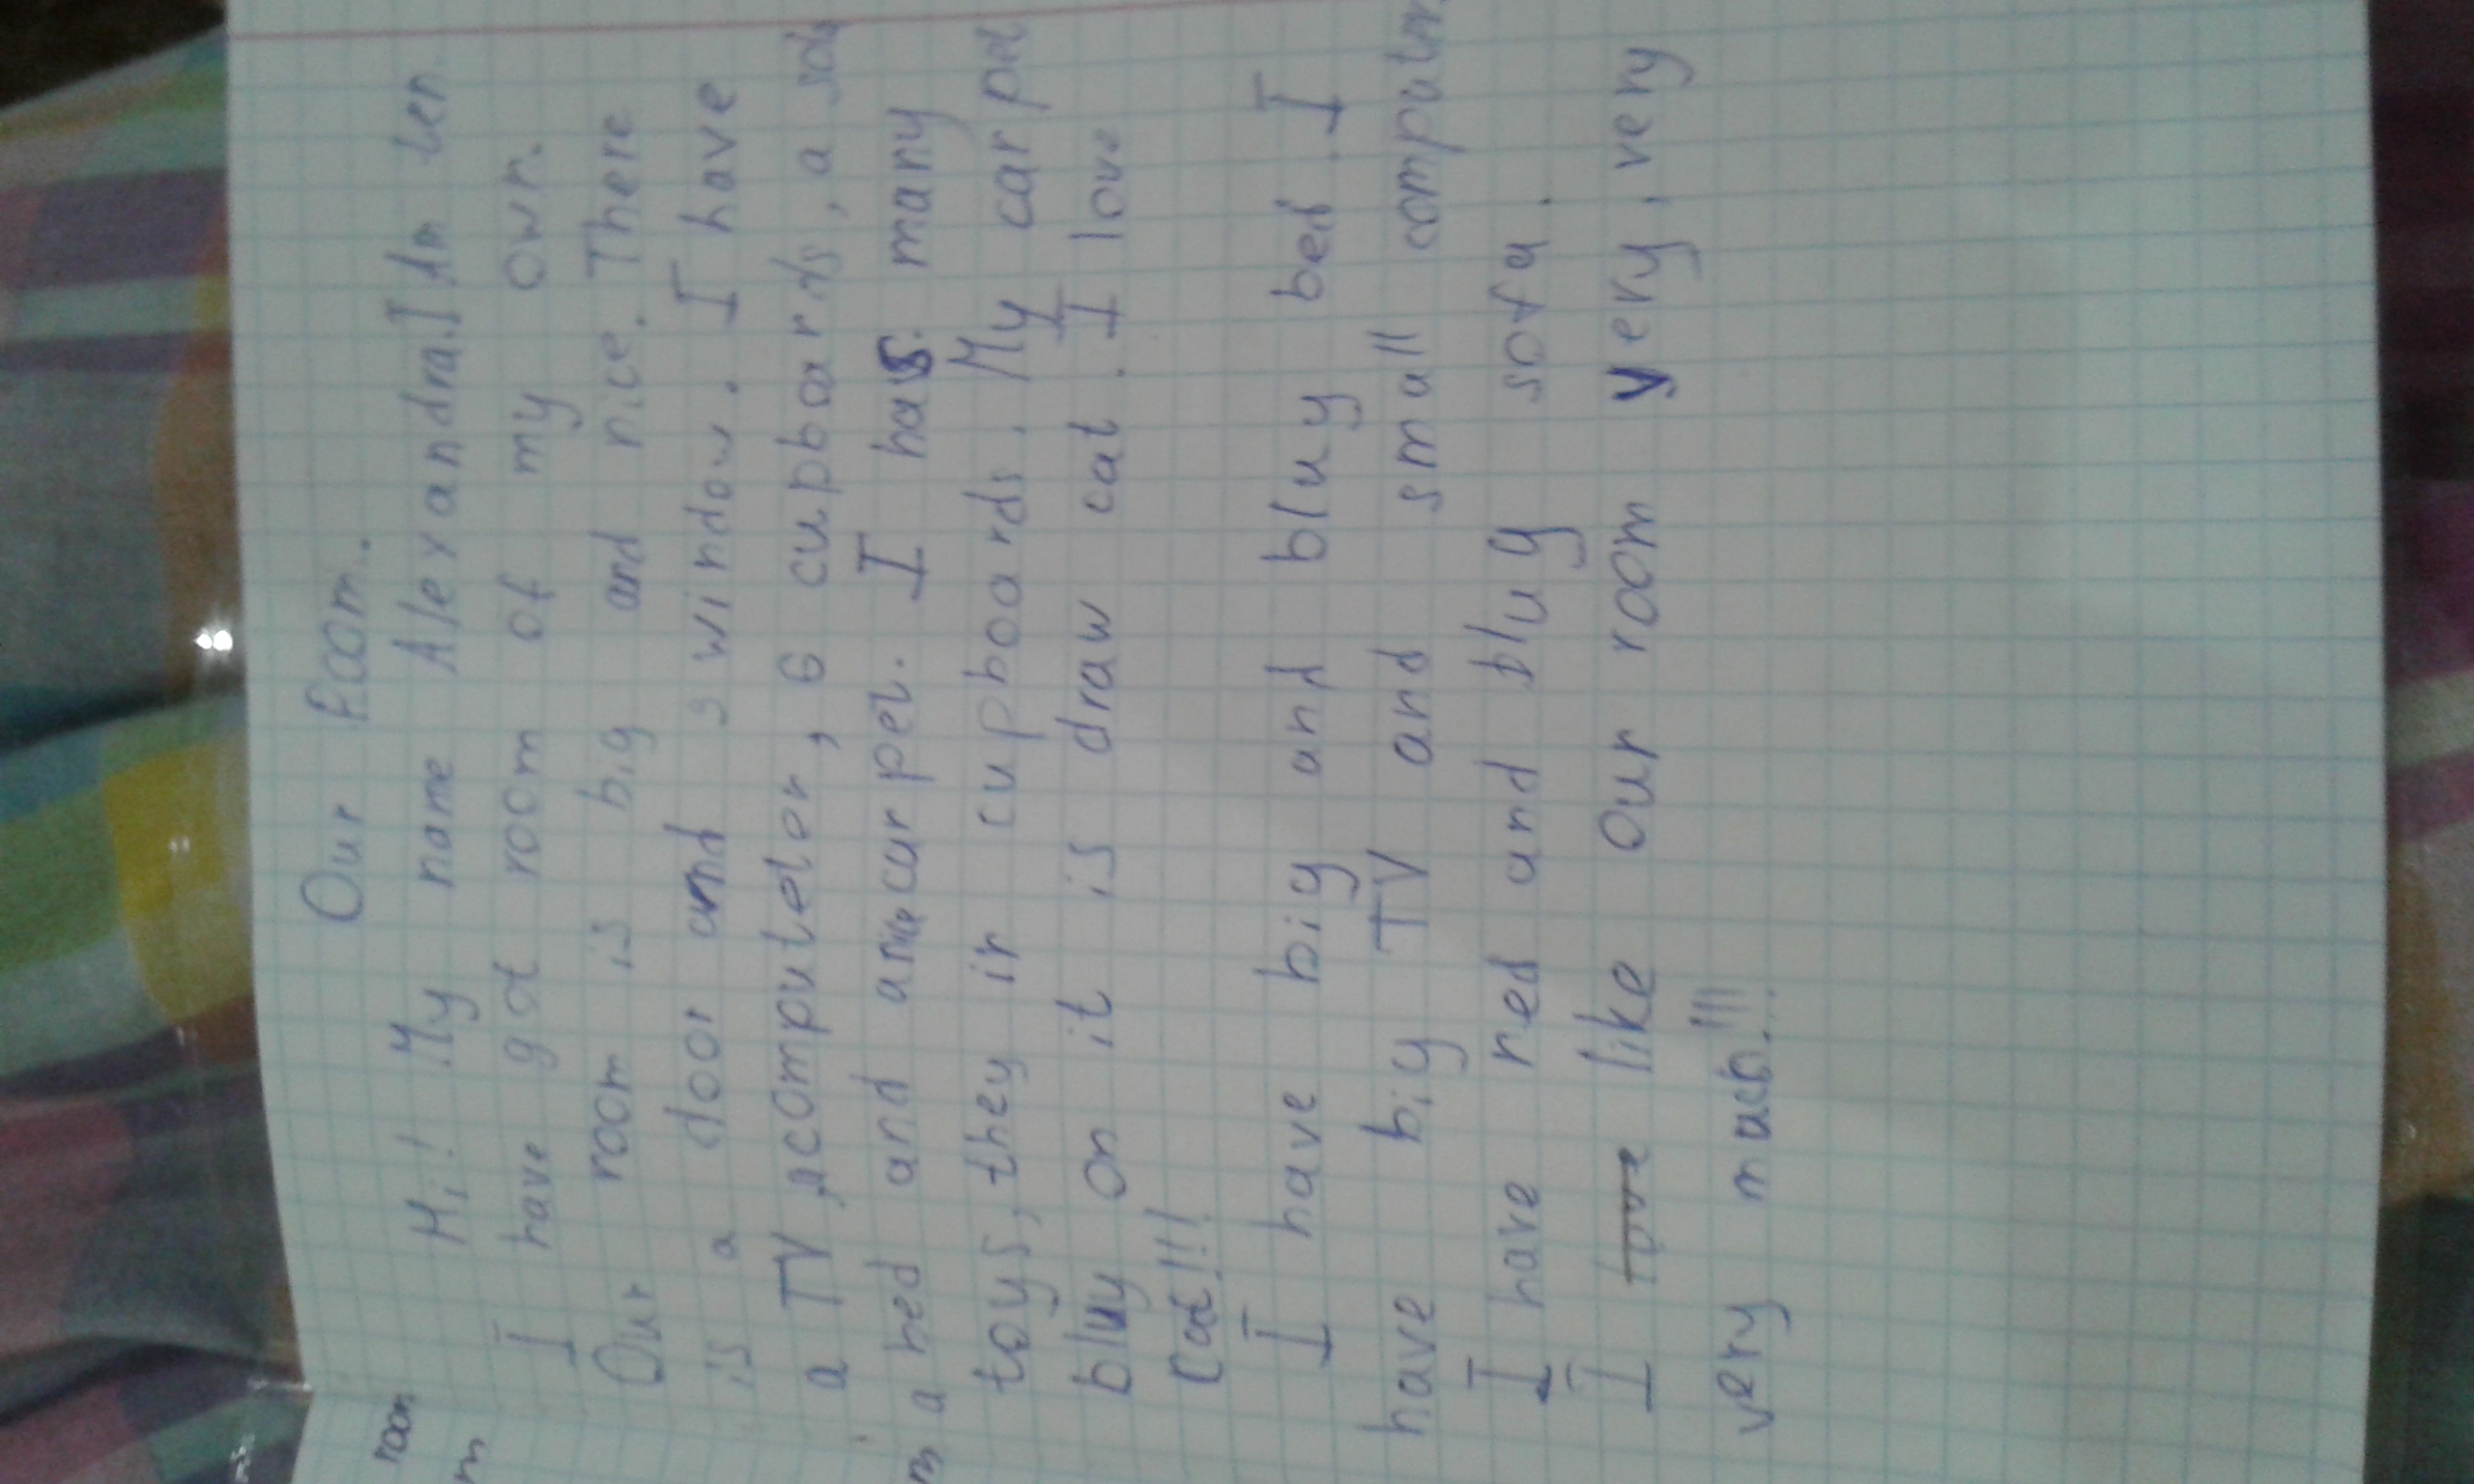 Our Room.
Hi! My name Alexandra. I Am ten.
I have got room of my own.
Our room is big and nice. There
is a door and 3 window. I have
a TV, a computeter, 6 cupboards, a sofa
a bed and a carpet. I has many
toys, they in cupboards. My carpet
bluy on it is draw cat. I love
cat!!!
I have biy and bluy bed. I
have biy TV and small computer.
I have red and bluy sofa.
I love like Our room very, very
very much!!!
room
m
m